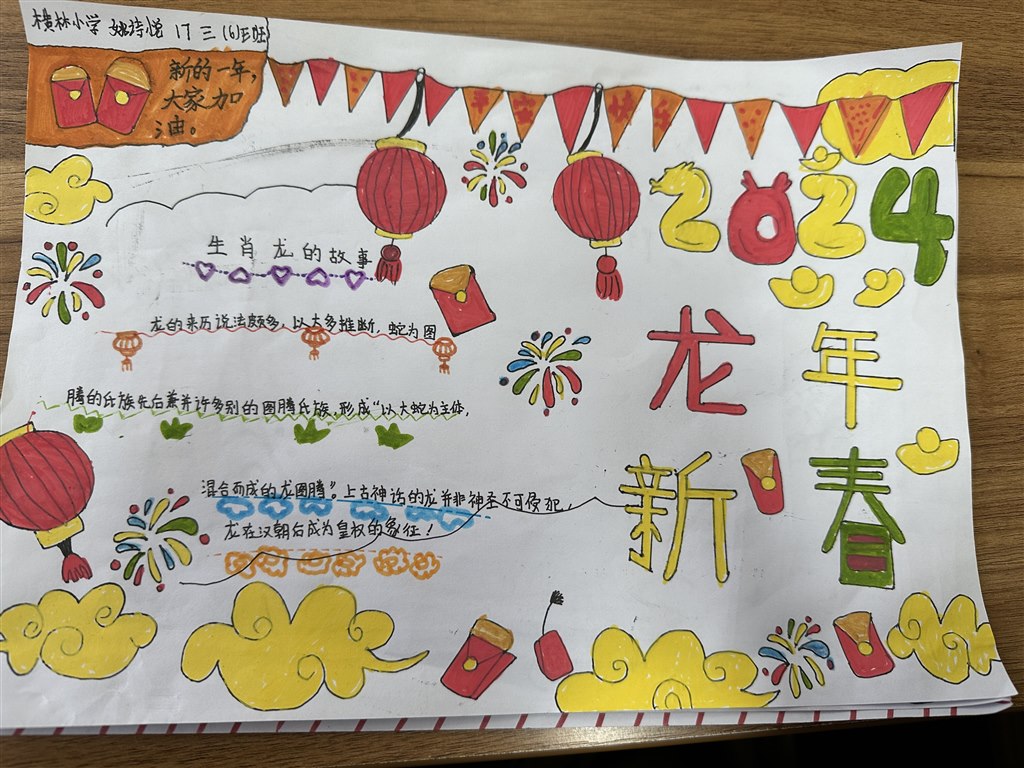 横林小学 姚诗悦 17 三(6)班
新的一年,
大家加
油。
平安 快乐
2024
龙年
新春
生肖龙的故事
龙的来历说法颇多,以大多推断,蛇为图
腾的氏族先后兼并许多别的图腾氏族,形成“以大蛇为主体,
混合而成的龙图腾”。上古神话的龙并非神圣不可侵犯,
龙在汉朝后成为皇权的象征!